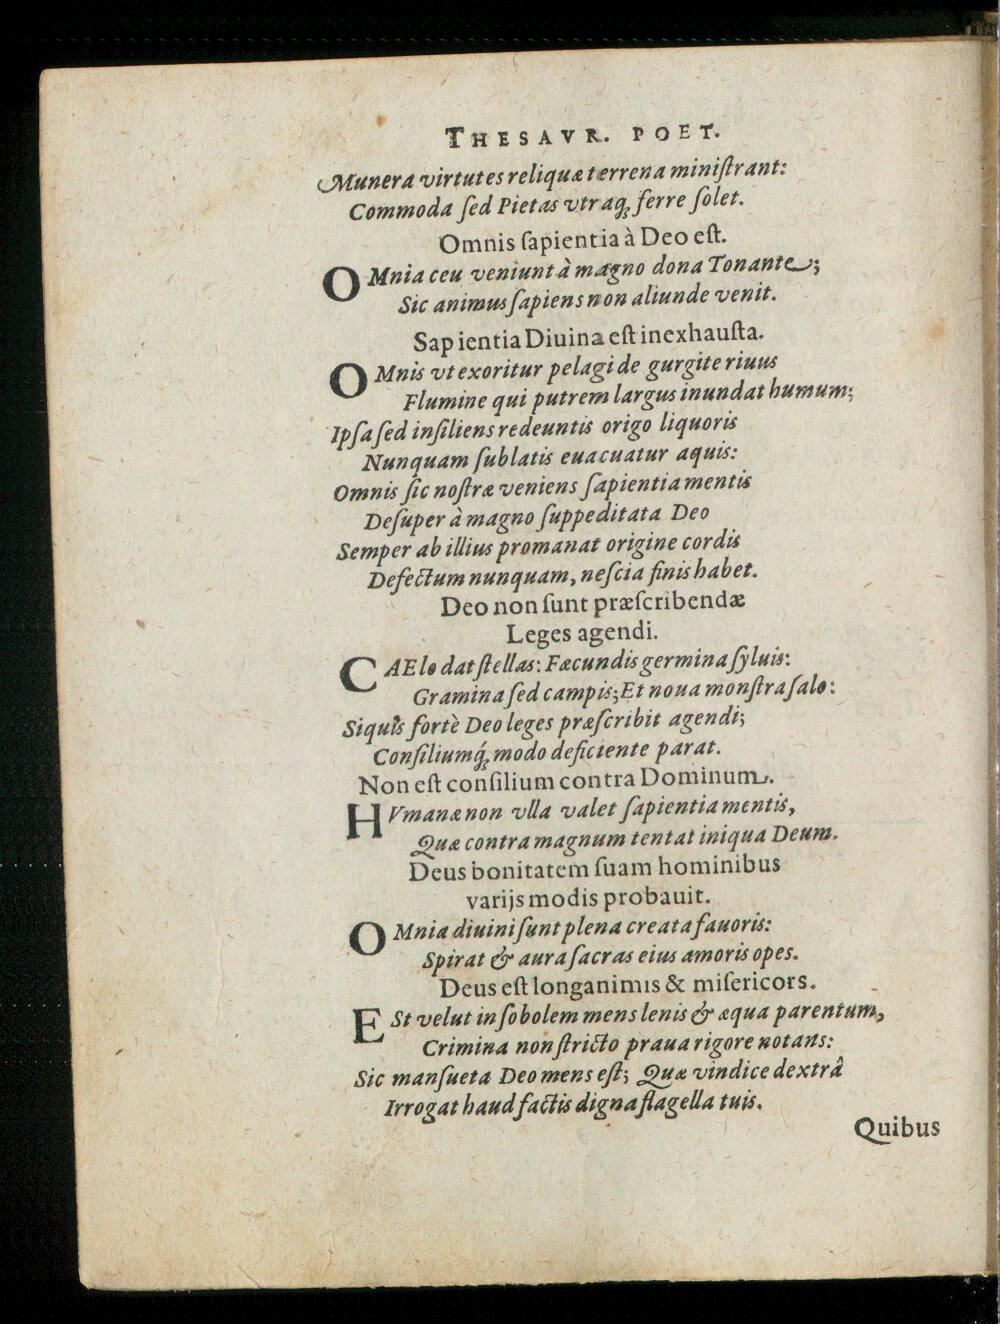 THESAVR. POET.
Munera virtutes reliquæ terrena miniſtrant:
Commoda ſed Pietas vtraq; ferre ſolet.
Omnis ſapientia à Deo eſt.
OMnia ceu veniunt à magno dona Tonante;
Sic animus ſapiens non aliunde venit.
Sapientia Diuina eſt inexhauſta.
OMnis vt exoritur pelagi de gurgite riuus
Flumine qui putrem largus inundat humum;
Ipſa ſed inſiliens redeuntis origo liquoris
Nunquam ſublatis euacuatur aquis:
Omnis ſic noſtræ veniens ſapientia mentis
Deſuper à magno ſuppeditata Deo
Semper ab illius promanat origine cordis
Defectum nunquam, neſcia finis habet.
Deo non ſunt præſcribendæ
Leges agendi.
CAElo dat ſtellas: Fæcundis germina ſyluis:
Gramina ſed campis; Et noua monſtra ſalo:
Siquis fortè Deo leges præſcribit agendi;
Conſiliumq́; modo deficiente parat.
Non eſt conſilium contra Dominum.
HVmanæ non vlla valet ſapientia mentis,
Quæ contra magnum tentat iniqua Deum.
Deus bonitatem ſuam hominibus
varijs modis probauit.
OMnia diuini ſunt plena creata fauoris:
Spirat & aura ſacras eius amoris opes.
Deus eſt longanimis & miſericors.
ESt velut in ſobolem mens lenis & æqua parentum,
Crimina non ſtricto praua rigore notans:
Sic manſueta Deo mens eſt; Quæ vindice dextrâ
Irrogat haud factis digna flagella tuis.
Quibus